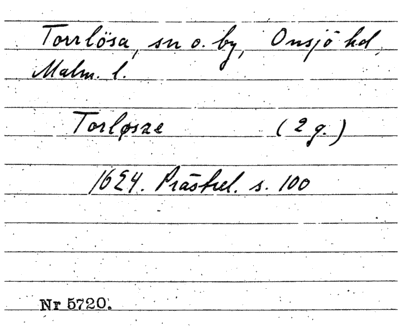 Torrlösa, sn o. by, Onsjö hd,
Malm. l.
Torløsze (2 g.)
1624. Prästrel. s. 100
Nr 5720.